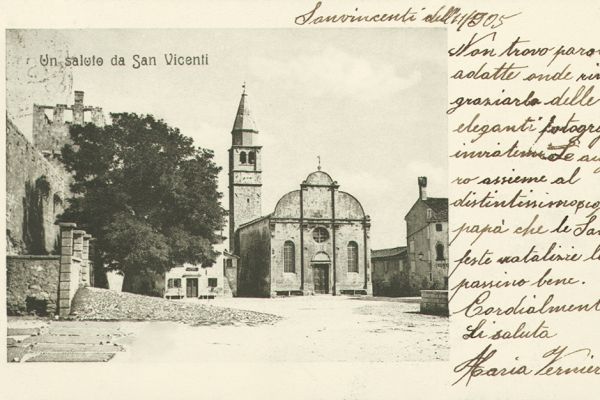 Sanvincenti dell'11/1905
Un saluto da San Vicenti
Non trovo paro
adatte onde rin
graziarla delle
eleganti fotogra
inviatemi. Le augu
ro assieme al
distintissimo suo
papà che le San
feste natalizie le
passino bene.
Cordialment
La saluta
Maria Vernier